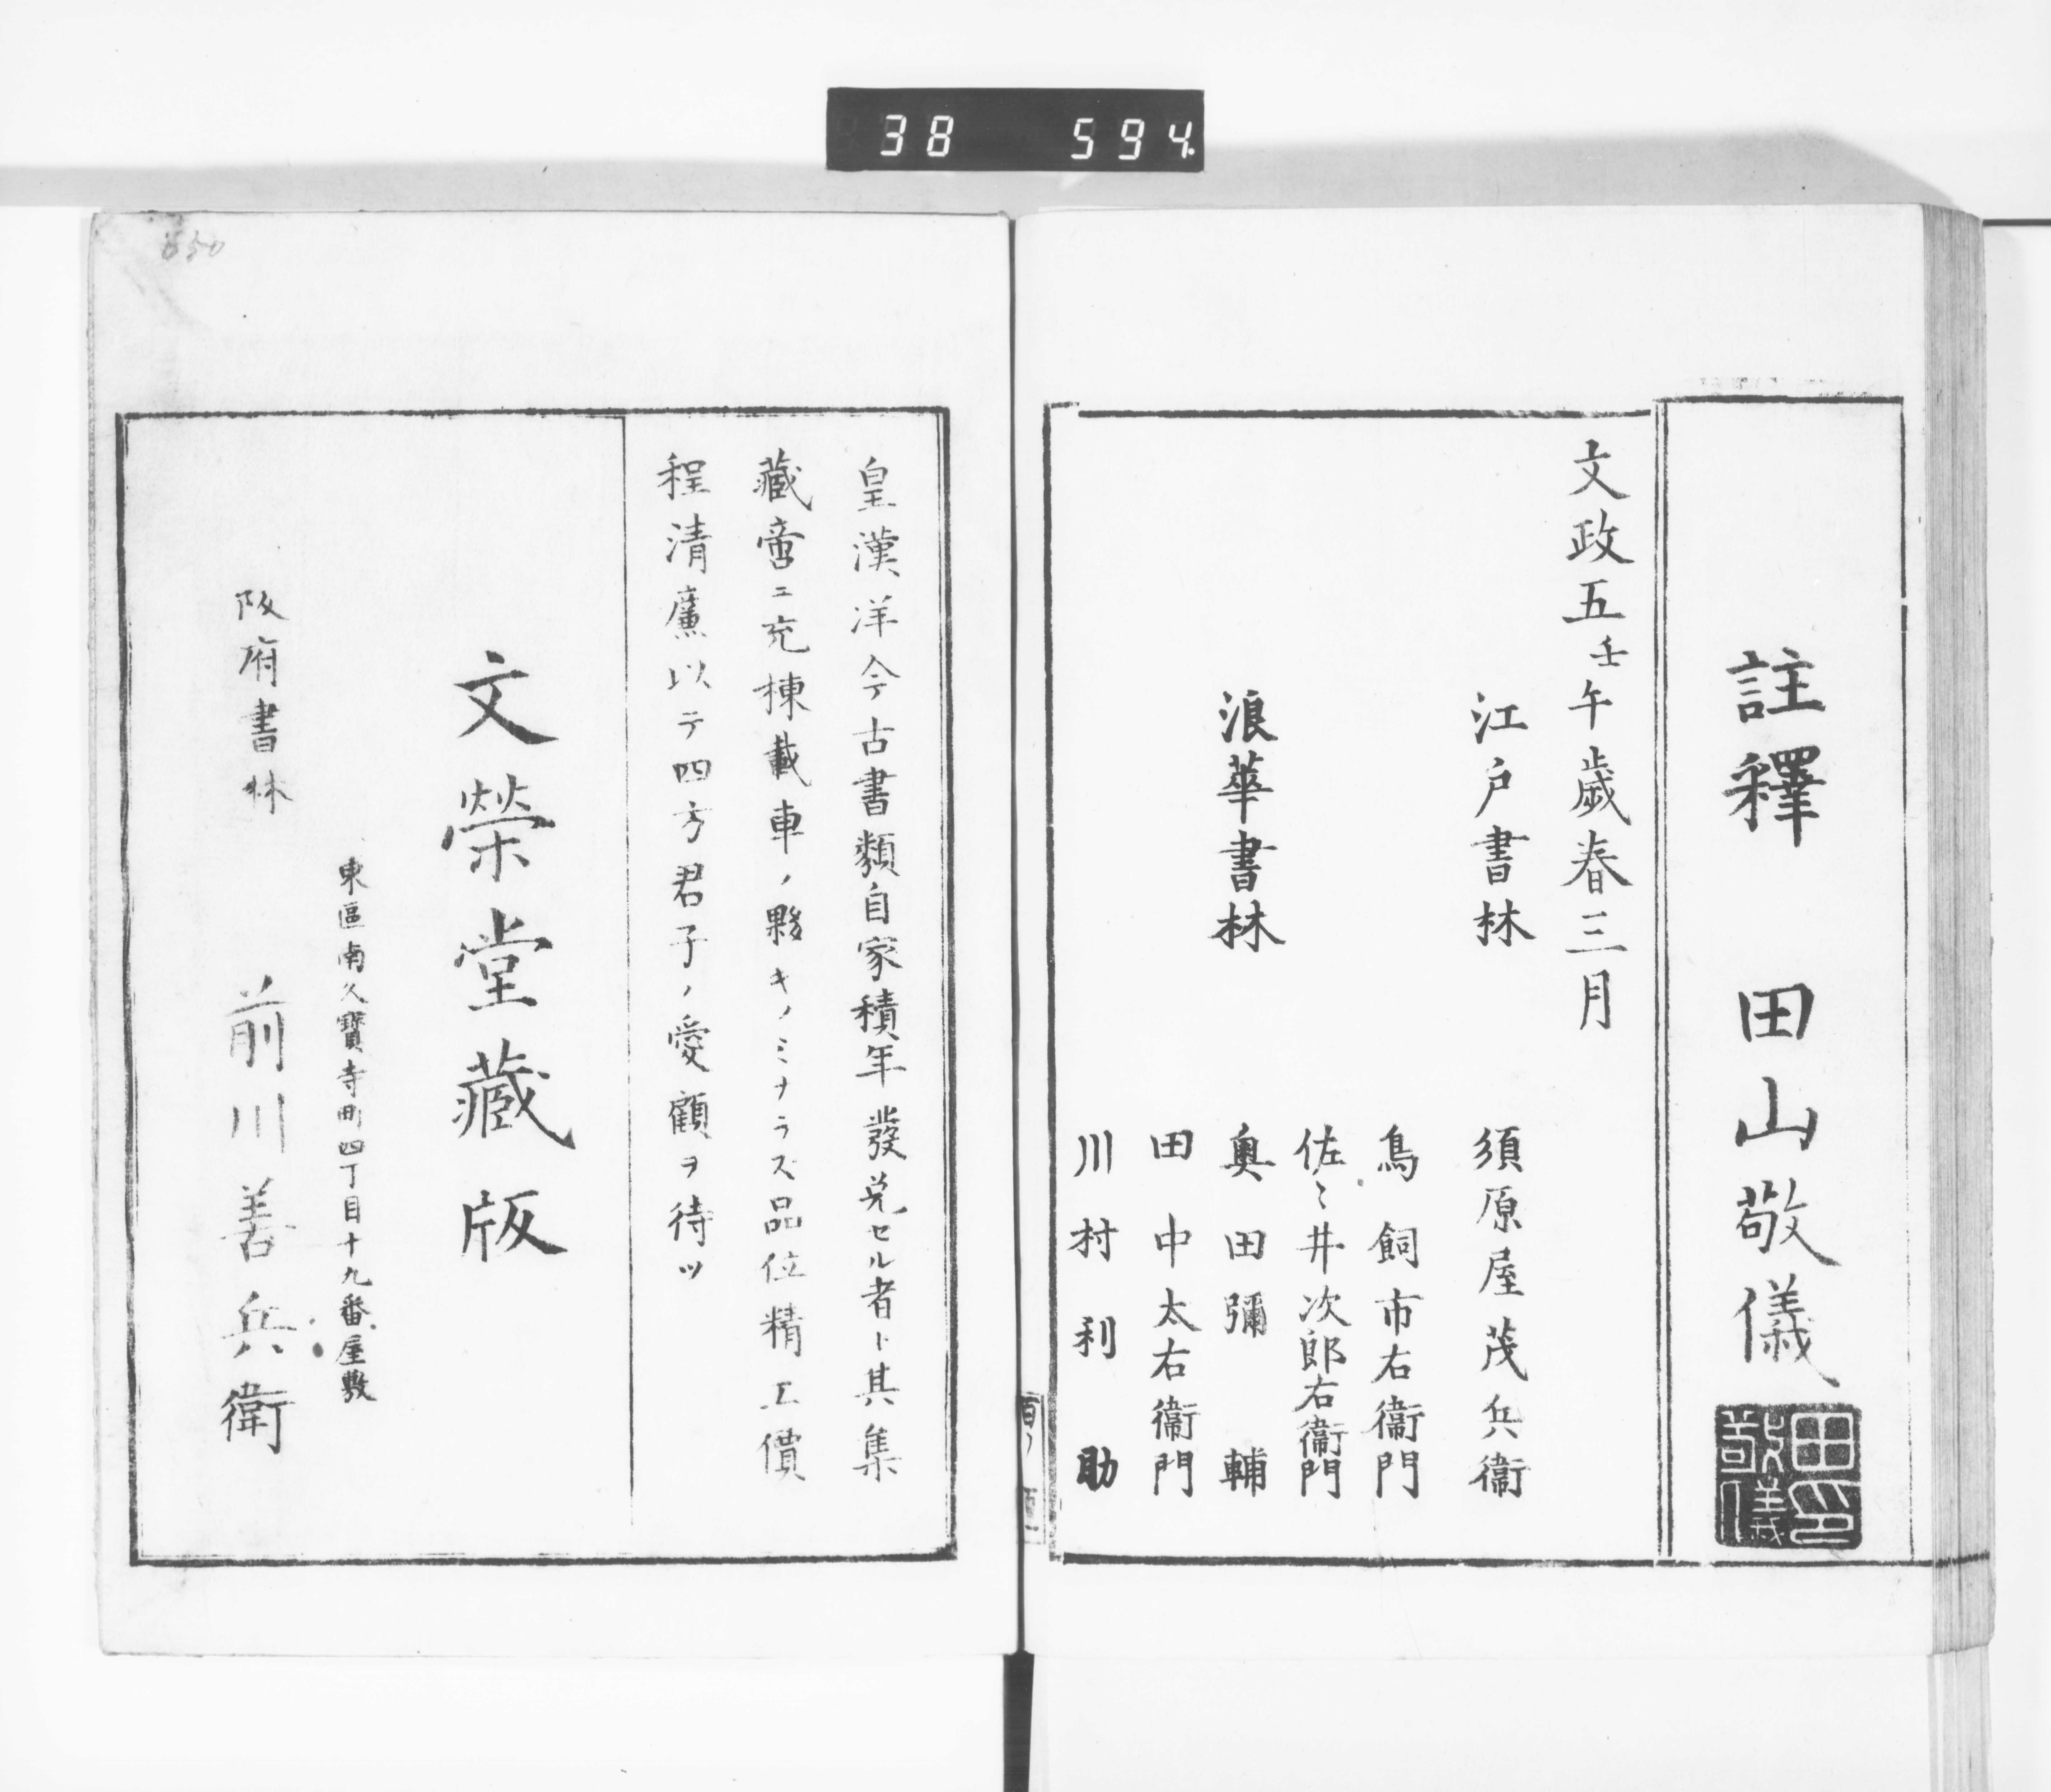 38 594.
註釋 田山敬儀
田印敬儀
文政五壬午歳春三月
江戸書林 須原屋茂兵衞
鳥飼市右衞門
佐々井次郎右衞門
浪華書林 奥田彌輔
田中太右衞門
川村利助
皇漢洋今古書類自家積年發兌セル者ト其集
藏啻ニ充棟載車ノ夥キノミナラス品位精工價
程清廉以テ四方君子ノ愛顧ヲ待ツ
文榮堂藏版
東區南久寶寺町四丁目十九番屋敷
阪府書林 前川善兵衛